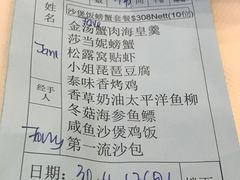 沙煲饭螃蟹套餐$308Nett(10份
姓名
金汤蟹肉海皇羹
莎当妮螃蟹
松露窝贴虾
小姐琵琶豆腐
泰味香烤鸡
经手人
香草奶油太平洋鱼柳
冬菇海参鱼鳔
咸鱼沙煲鸡饭
第一流沙包
日期: